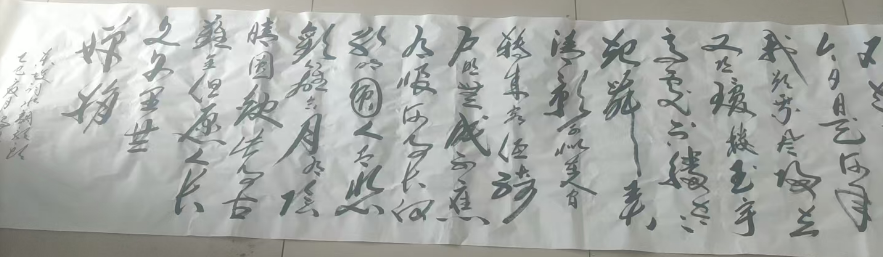 今夕是何年
我欲乘风归去
又恐琼楼玉宇
高处不胜寒
起舞弄
清影何似在人间
转朱阁低绮
户照无眠不应
有恨何事长向
别时圆人有悲
欢离合月有阴
晴圆缺此事古
难全但愿人长
久千里共
婵娟